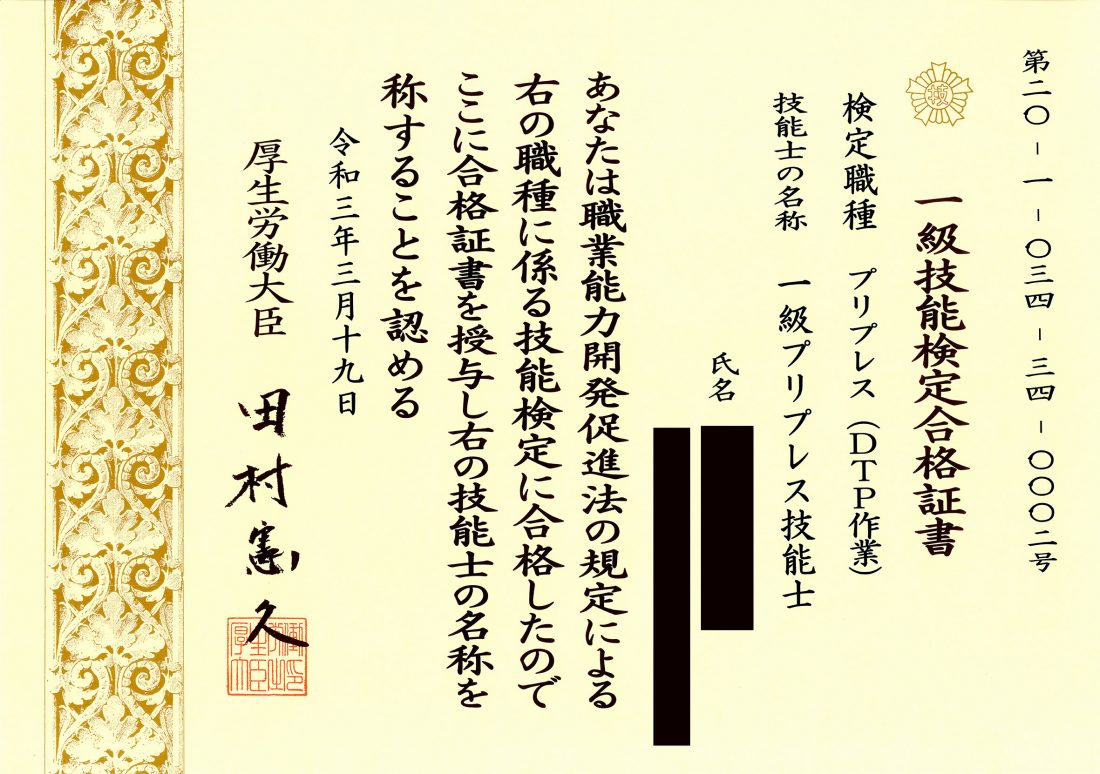 第二〇-一-〇三四-三四-〇〇〇二号
技
一級技能検定合格証書
検定職種 プリプレス(DTP作業)
技能士の名称 一級プリプレス技能士
氏名
あなたは職業能力開発促進法の規定による
右の職種に係る技能検定に合格したので
ここに合格証書を授与し右の技能士の名称を
称することを認める
令和三年三月十九日
厚生労働大臣 田村憲久